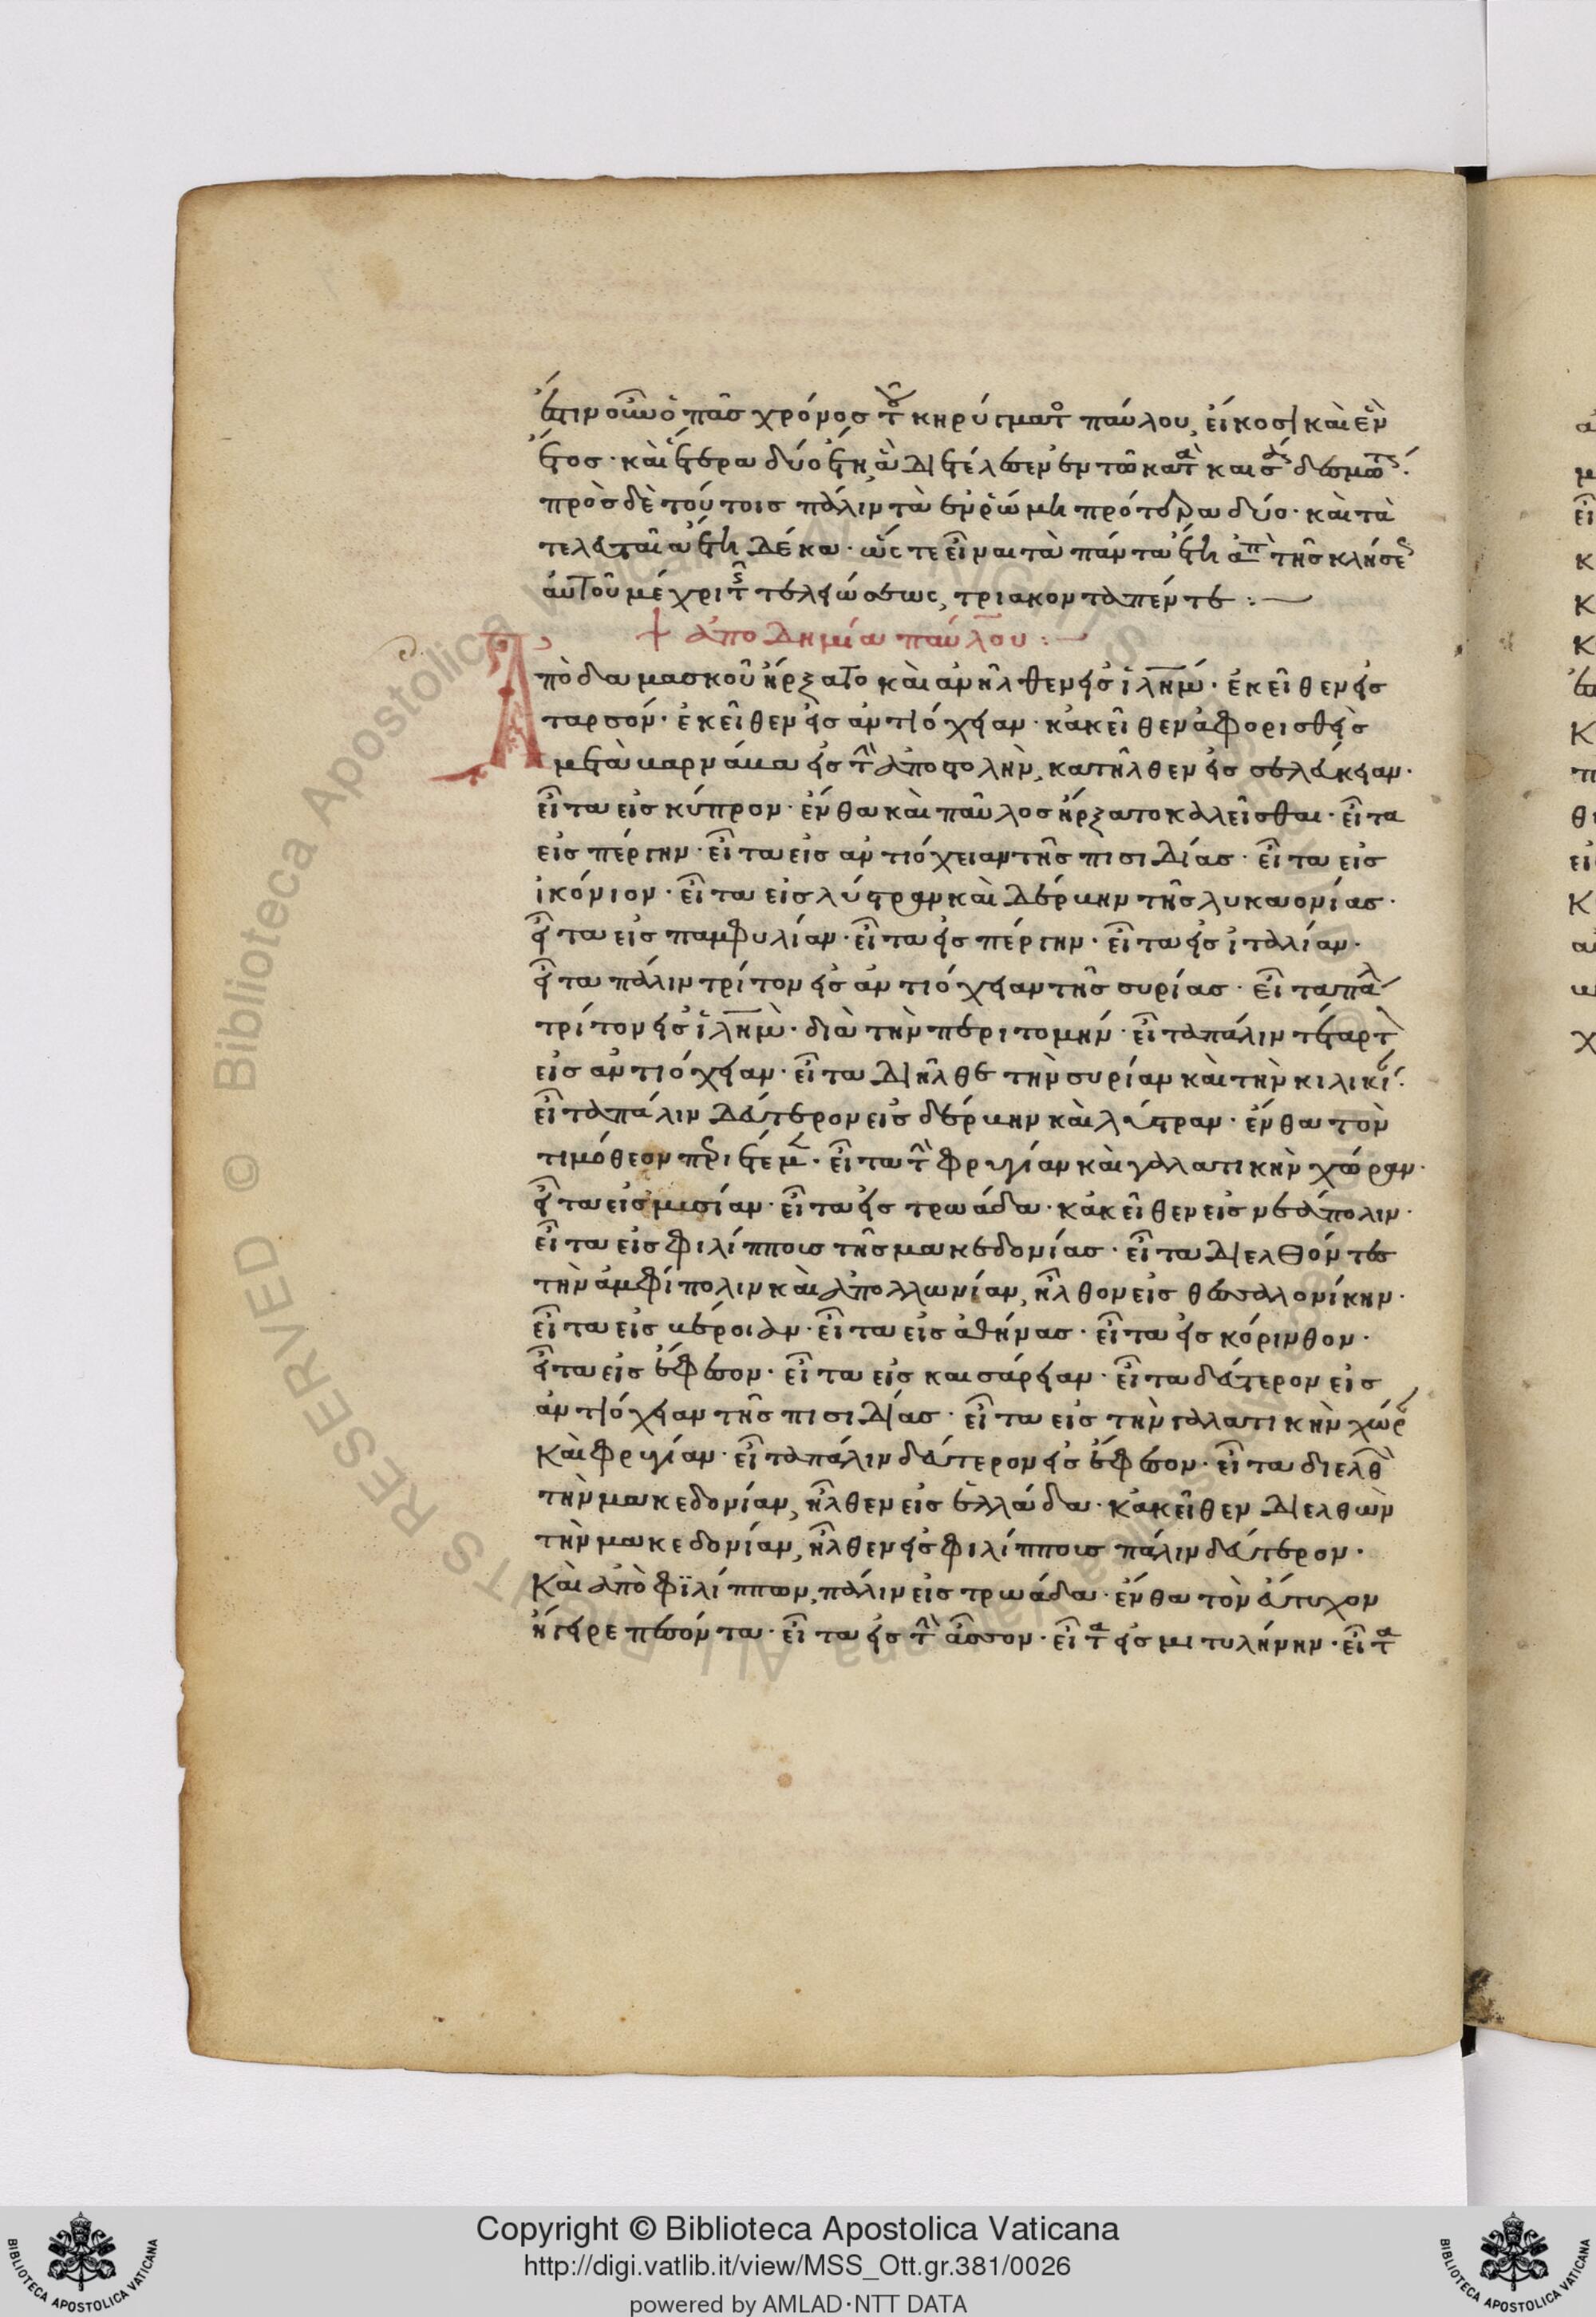 ἔστιν οὖν ὁ πᾶς χρόνος τοῦ κηρύγματος παύλου, εἴκοσι καὶ ἓν
ἔτος· καὶ ἕτερα δύο ἔτη, ἃ διετέλεσεν ἐν τῶ κατὰ καισάρειαν δεσμωτηρίω·
πρὸς δὲ τούτοις πάλιν τὰ ἐν ῥώμη πρότερα δύο· καὶ τὰ
τελευταῖα ἔτη δέκα· ὥς τε εἶναι τὰ πάντα ἔτη ἀπὸ τῆς κλήσεως
αὐτοῦ μέχρι τῆς τελειώσεως, τριακονταπέντε :—
+ ἀποδημία παύλου :—
Ἀπὸ δαμασκοῦ ἤρξατο καὶ ἀνῆλθεν εἰς ἰλημ· ἐκεῖθεν εἰς
ταρσόν· ἐκεῖθεν εἰς ἀντιόχειαν· κἀκεῖθεν ἀφορισθεὶς
μετὰ βαρνάβα εἰς τὴν ἀποστολὴν, κατῆλθεν εἰς σελεύκειαν·
εἶτα εἰς κύπρον· ἔνθα καὶ παῦλος ἤρξατο καλεῖσθαι· εἶτα
εἰς πέργην· εἶτα εἰς ἀντιόχειαν τῆς πισιδίας· εἶτα εἰς
ἰκόνιον· εἶτα εἰς λύστραν καὶ δέρβην τῆς λυκαονίας·
εἶτα εἰς παμφυλίαν· εἶτα εἰς πέργην· εἶτα εἰς ἰταλίαν·
εἶτα πάλιν τρίτον εἰς ἀντιόχειαν τῆς συρίας· εἶτα πάλιν
τρίτον εἰς ἰλημ· διὰ τὴν περιτομήν· εἶτα πάλιν τέταρτον
εἰς ἀντιόχειαν· εἶτα διῆλθε τὴν συρίαν καὶ τὴν κιλικίαν·
εἶτα πάλιν δεύτερον εἰς δέρβην καὶ λύστραν· ἔνθα τὸν
τιμόθεον περιέτεμεν· εἶτα τὴν φρυγίαν καὶ γαλατικὴν χώραν·
εἶτα εἰς μυσίαν· εἶτα εἰς τρωάδα· κἀκεῖθεν εἰς νεάπολιν·
εἶτα εἰς φιλίππους τῆς μακεδονίας· εἶτα διελθόντες
τὴν ἀμφίπολιν καὶ ἀπολλωνίαν, ἦλθον εἰς θεσσαλονίκην·
εἶτα εἰς βέροιαν· εἶτα εἰς ἀθήνας· εἶτα εἰς κόρινθον·
εἶτα εἰς ἔφεσον· εἶτα εἰς καισάρειαν· εἶτα δεύτερον εἰς
ἀντιόχειαν τῆς πισιδίας· εἶτα εἰς τὴν γαλατικὴν χώραν
καὶ φρυγίαν· εἶτα πάλιν δεύτερον εἰς ἔφεσον· εἶτα διελθὼν
τὴν μακεδονίαν, ἦλθεν εἰς ἑλλάδα· κἀκεῖθεν διελθὼν
τὴν μακεδονίαν, ἦλθεν εἰς φιλίππους πάλιν δεύτερον·
καὶ ἀπὸ φϊλίππων, πάλιν εἰς τρωάδα· ἔνθα τὸν εὔτυχον
ἤγειρε πεσόντα· εἶτα εἰς τὴν ἄσσον· εἶτα εἰς μιτυλήνην· εἶτα
Copyright © Biblioteca Apostolica Vaticana
http://digi.vatlib.it/view/MSS_Ott.gr.381/0026
powered by AMLAD·NTT DATA